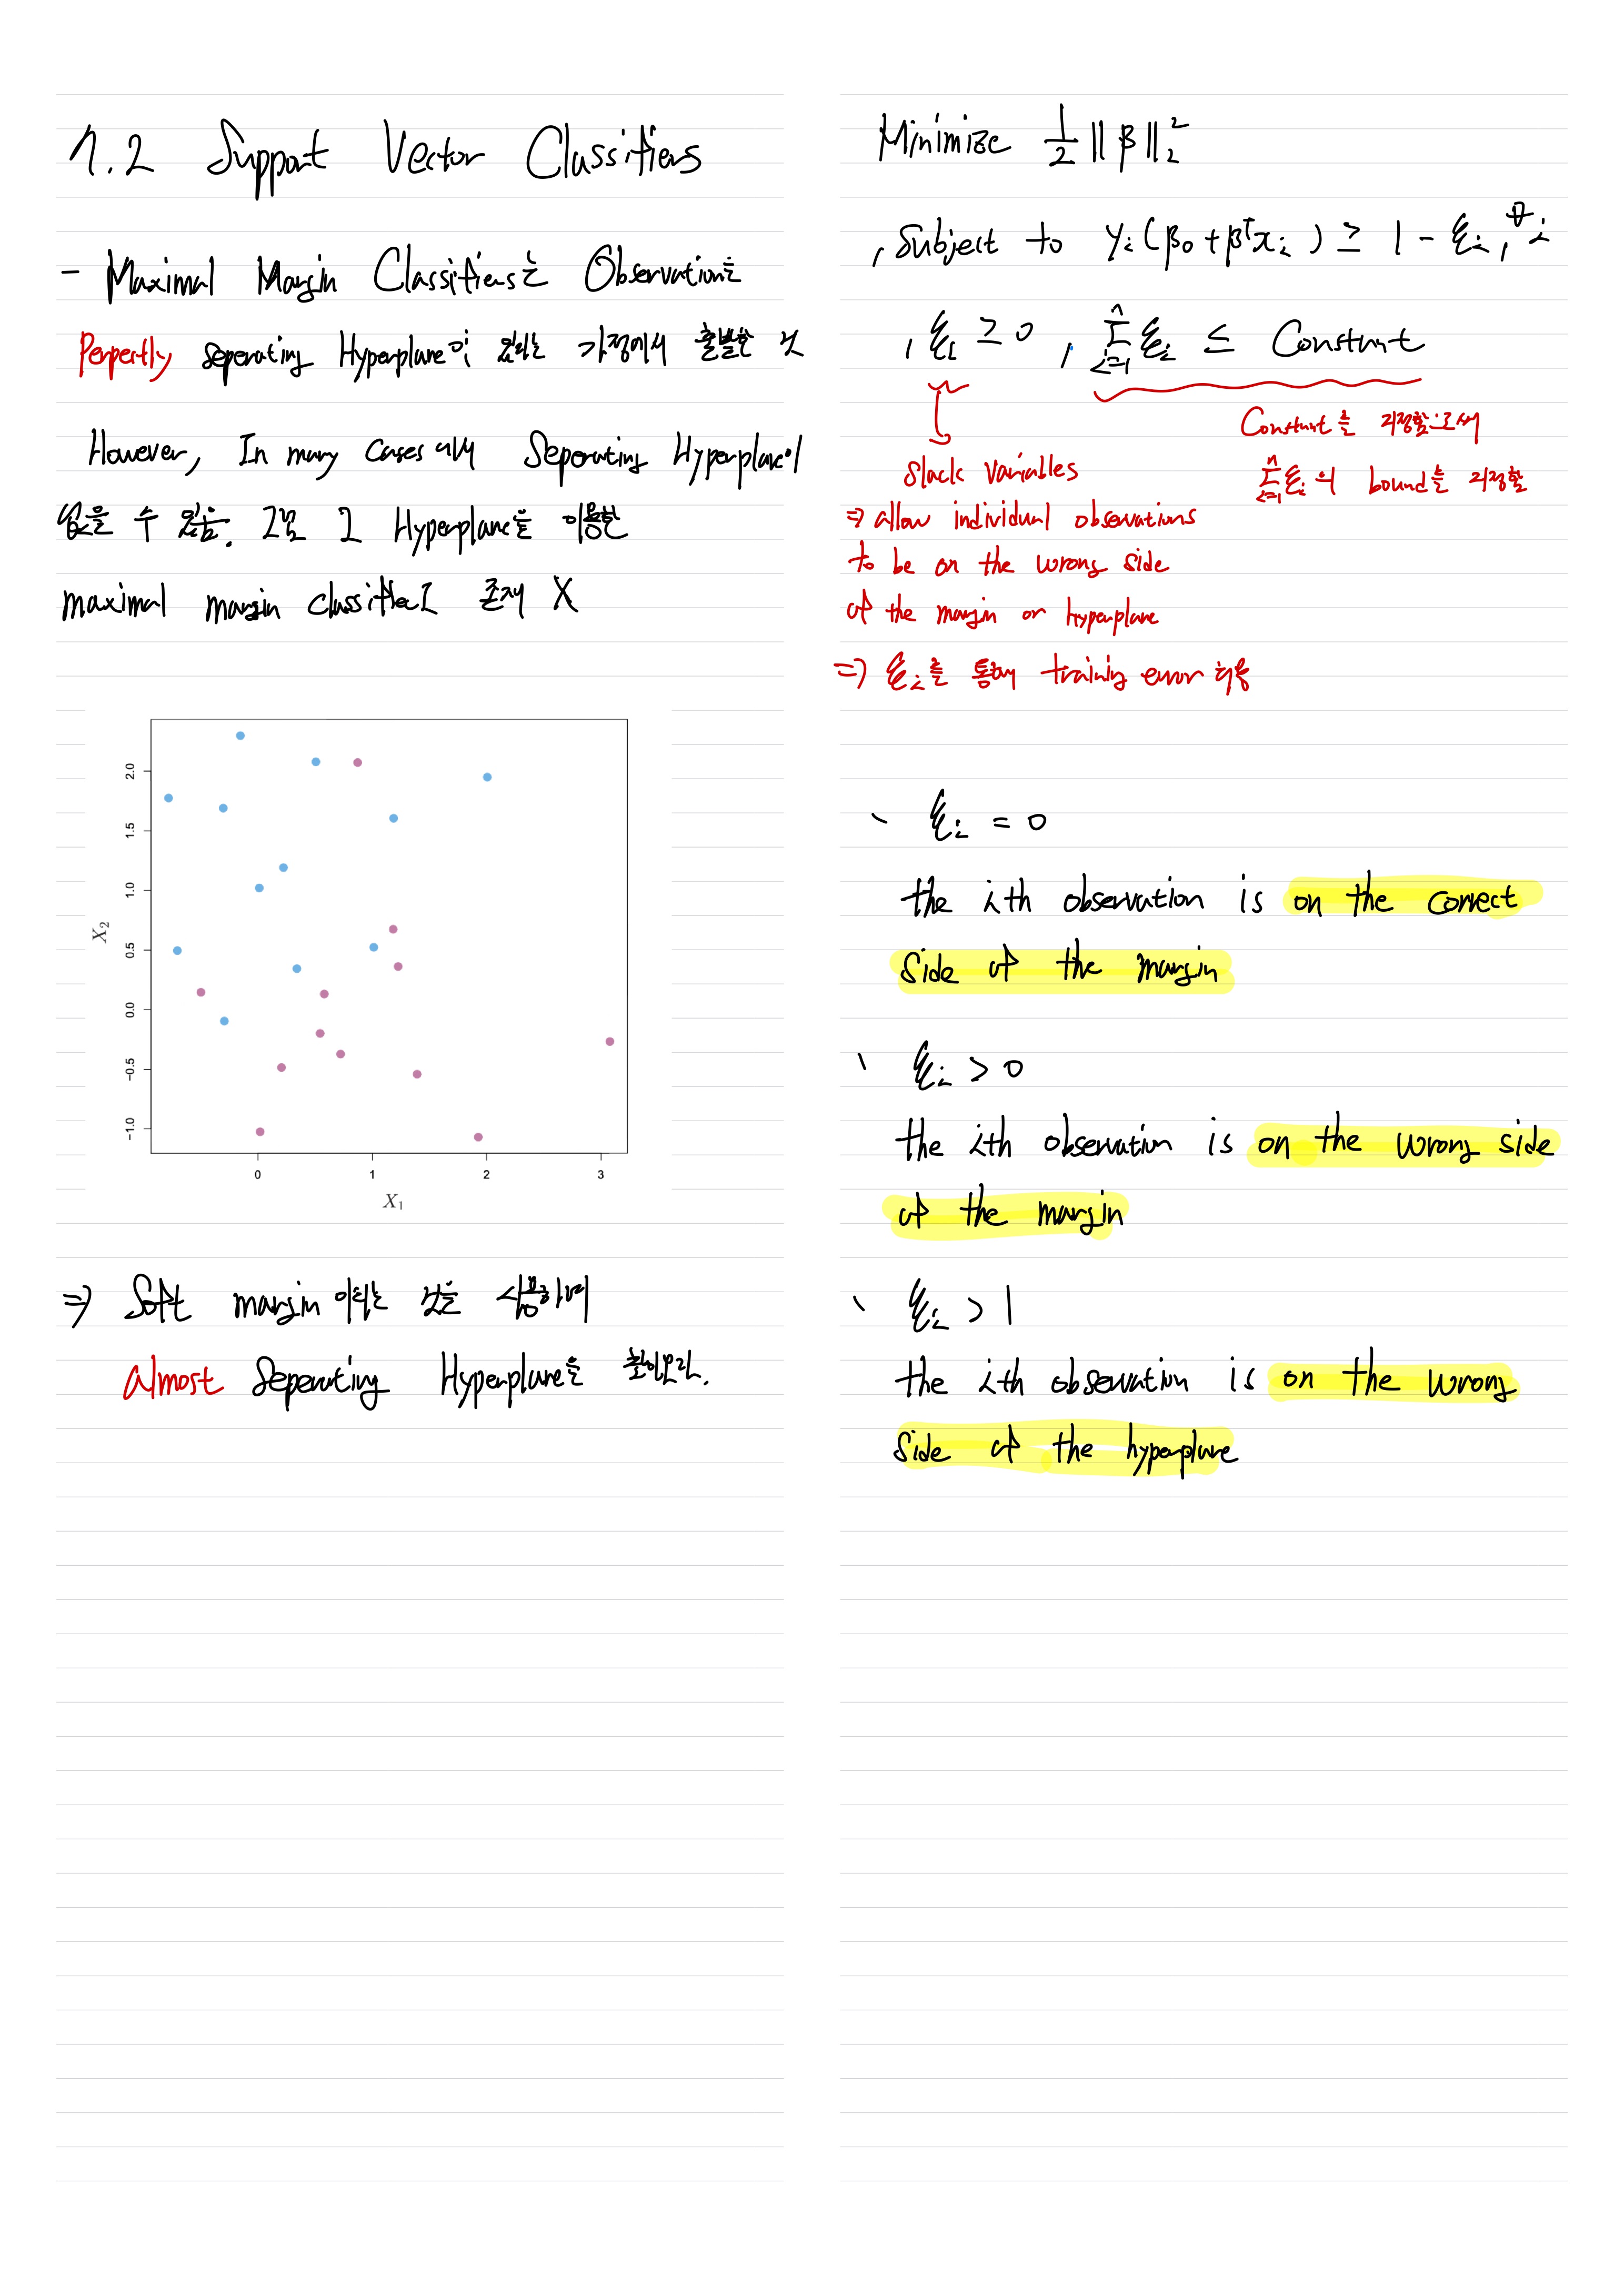 1.2 Support Vector Classifiers
- Maximal Margin Classifiers는 Observation을
Perpectly Seperating Hyperplane이 있다는 가정에서 출발한 것
However, In many cases에서 Seperating Hyperplane이
없을 수 있음. 그럼 그 Hyperplane을 이용한
maximal margin classifier도 존재 X
2.0
1.5
1.0
0.5
0.0
−0.5
−1.0
X₂
0 1 2 3
X₁
⇒ Soft margin이라는 것을 사용하여
almost Seperating Hyperplane을
Minimize ½ ‖β‖₂²
, Subject to yᵢ(β₀+βᵀxᵢ) ≥ 1 - ξᵢ, ∀i
, ξᵢ ≥ 0 , Σᵢ₌₁ⁿ ξᵢ ≤ Constant
Constant를 지정함으로써
Slack Variables
Σᵢ₌₁ⁿ ξᵢ의 bound를 지정함
⇒ allow individual observations
to be on the wrong side
of the margin or hyperplane
⇒ ξᵢ를 통해 training error 허용
ξᵢ = 0
the ith observation is on the correct
Side of the margin
ξᵢ > 0
the ith observation is on the wrong side
of the margin
ξᵢ > 1
the ith observation is on the wrong
Side of the hyperplane